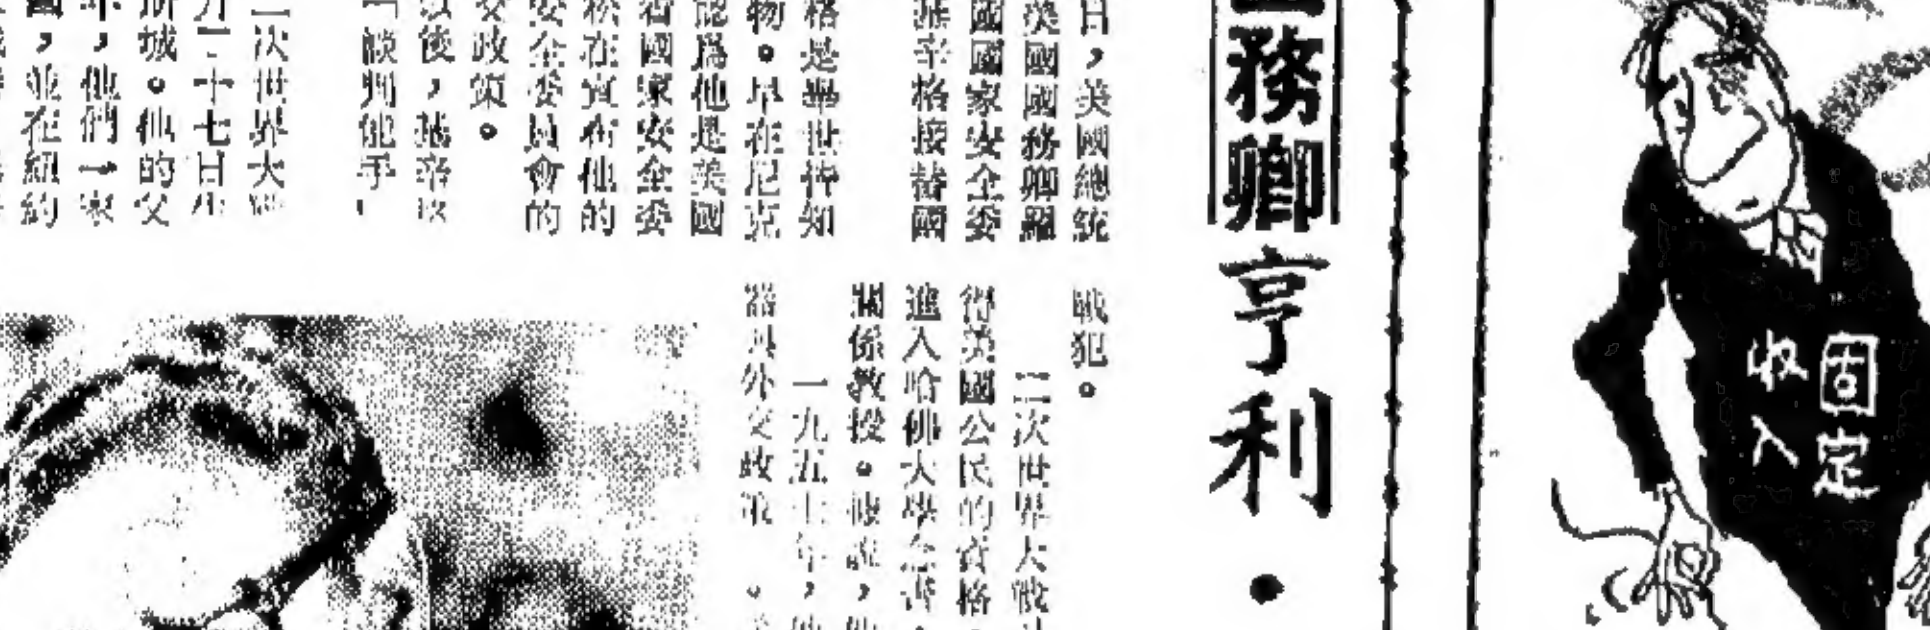 固定
收入
務卿亨利·
日，美國總統
美國國務卿羅
國國家安全委
派辛格接替國
格是舉世皆知
物。早在尼克
能爲他是美國
看國家安全委
松在宣布他的
安全委員會的
政策。
後，基辛
談判能手
二次世界大
十七日
城。他的父
，他們一家
，並在紐約
戰犯。
二次世界大戰
得美國公民的資格
進入哈佛大學念書
關係教授。
一九五七年，
器與外交政策